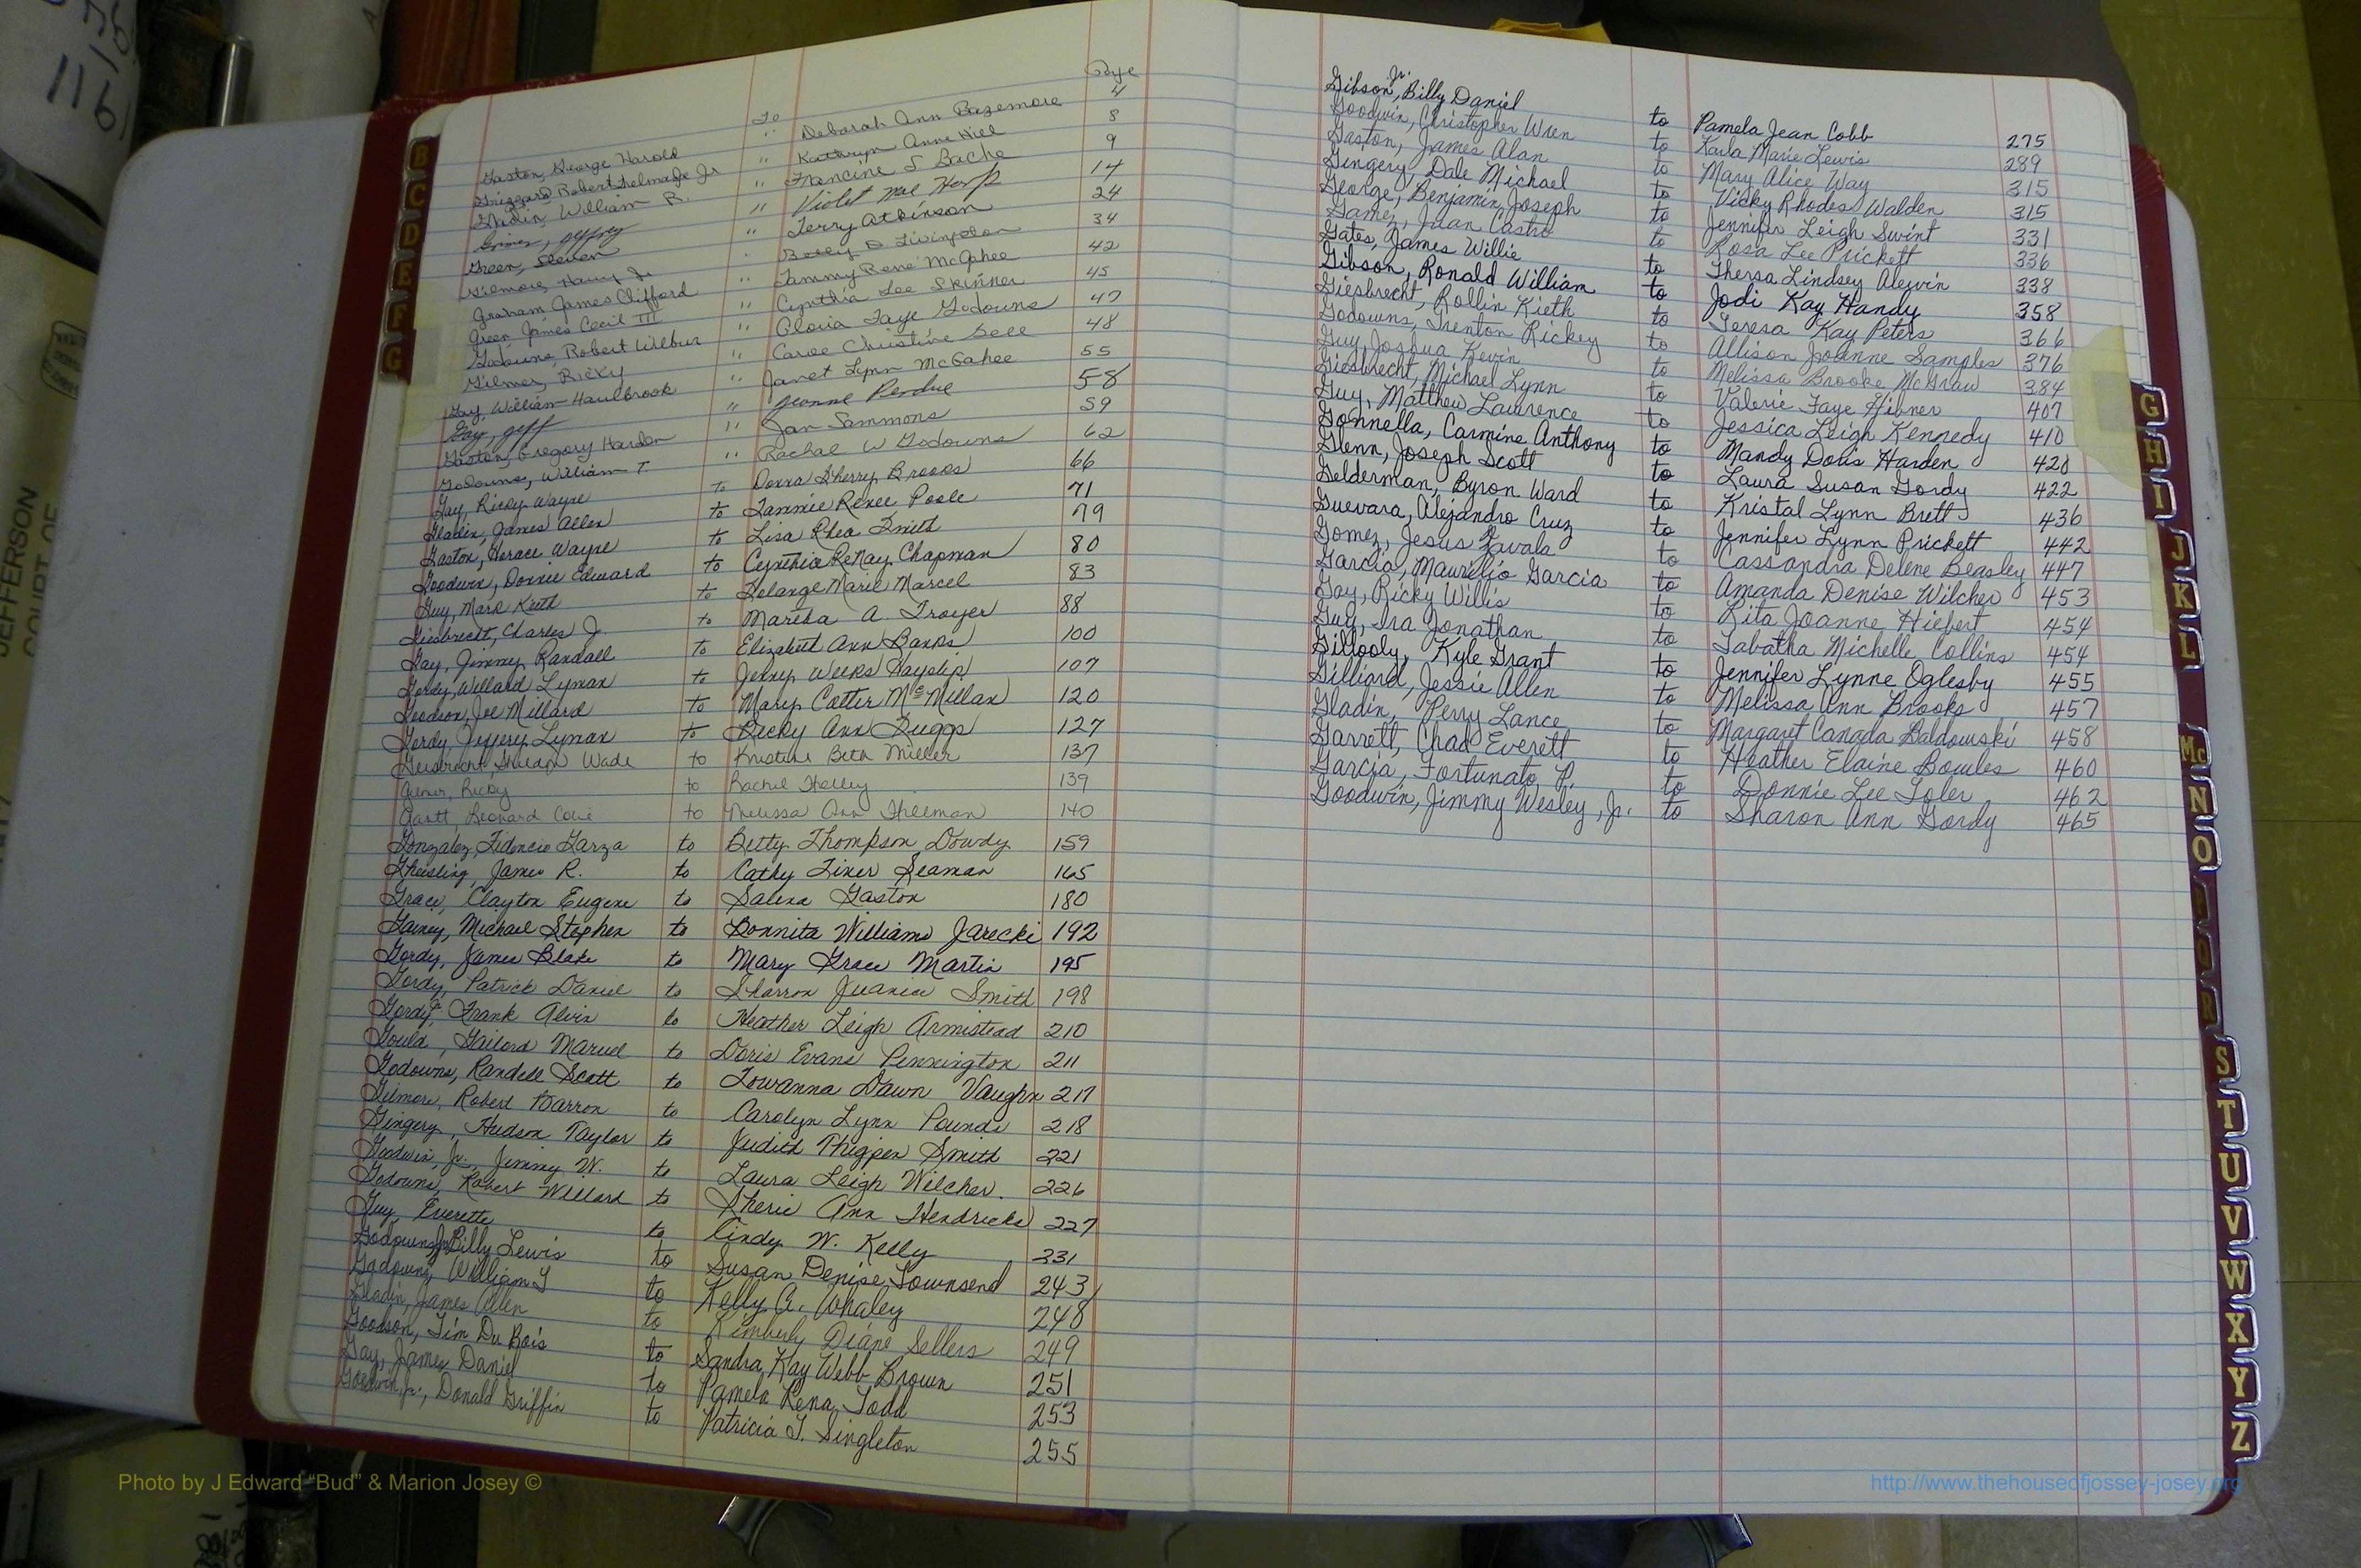 Page
To
Gaston, George Harold " Deborah Ann Bazemore 4
Grizzard Robert Talmadge Jr " Kathryn Anne Hill 8
William R. " Francine S Bache 9
Grimes, Jeffrey " Violet Mae Harp 14
Green, Steven " Terry Atkinson 24
Gilmore, Harry Jr " D Livingston 34
Graham James Clifford " Tammy Rene McGahee 42
Green James Cecil III " Cynthia Lee Skinner 45
Godowns, Robert Wilbur " Gloria Faye Godowns 47
Gilmer, Ricky " Christine 48
Gay, William Haulbrook " Janet Lynn McGahee 55
Gay, Jeff " Jeanne Perdue 58
Gaston, Gregory Harden " Jan Sammons 59
Godowns, William T. " Rachal W Godowns 62
Gay, Ricky Wayne to Donna Sherry Brooks 66
Gladin, James Allen to Tammie Renee Poole 71
Gaston, Horace Wayne to Lisa Rhea Smith 79
Goodwin, Donnie Edward to Cynthia ReNay Chapman 80
Guy, Mark Keith to Solange Marie Marcel 83
Giesbrecht, Charles J. to Martha A. Troyer 88
Gay, Jimmy Randall to Elizabeth Ann Banks 100
Gordy, Willard Lyman to Jenny Weeks Hayslip 107
Goodson, Joe Millard to Mary Cotter McMillan 120
Gordy, Jeffery Lyman to Becky Ann Suggs 127
Geisbrecht, Wade to Kristine Beth Miller 137
Gilmer, Ricky to Rachel Shelley 139
Gantt, Leonard to Melissa Ann Hillman 140
Gonzalez, Fidencio Garza to Betty Thompson Dowdy 159
Gheisling, James R. to Cathy Liner Seaman 165
Grace, Clayton Eugene to Salena Gaston 180
Gainey, Michael Stephen to Donnita Williams Jarecki 192
Gordy, James Blake to Mary Grace Martin 195
Gordy, Patrick Daniel to Sharron Juanice Smith 198
Gordy, Jr. Frank Alvin to Heather Leigh Armistead 210
Gould, Gailord Marvel to Doris Evans Pennington 211
Godowns, Randell Scott to Towanna Dawn Vaughn 217
Gilmore, Robert Barron to Carolyn Lynn Pounds 218
Gingery, Hudson Taylor to Judith Thigpen Smith 221
Goodwin, Jr., Jimmy W. to Laura Leigh Wilcher. 226
Godowns, Robert Willard to Sherie Ann Hendricks 227
Guy Everette to Cindy W. Kelly 231
Godowns, Jr. Billy Lewis to Susan Denise Townsend 243
Godowns, William T to Kelly A. Whaley 248
Gladin, James Allen to Kimberly Diane Sellers 249
Goodson, Tim Du Bois to Sandra Kay Webb Brown 251
Gay, James Daniel to Pamela Rena Todd 253
Goodwin, Jr., Donald Griffin to Patricia T. Singleton 255
Gibson, Jr. Billy Daniel to Pamela Jean Cobb 275
Goodwin, Christopher Wren to Karla Marie Lewis 289
Gaston, James Alan to Mary Alice Way 315
Gingery, Dale Michael to Vicky Rhodes Walden 315
George, Benjamin Joseph to Jennifer Leigh Swint 331
Gamez, Juan Castro to Rosa Lee Prickett 336
Gates, James Willie to Thersa Lindsey 338
Gibson, Ronald William to Jodi Kay Handy 358
Giesbrecht, Rollin Kieth to Teresa Kay Peters 366
Godowns, Trenton Rickey to Allison Joanne Samples 376
Guy, Joshua Kevin to Melissa Brooke McGraw 384
Giesbrecht, Michael Lynn to Valerie Faye Hibner 407
Guy, Matthew Lawrence to Jessica Leigh Kennedy 410
Gonnella, Carmine Anthony to Mandy Doris Harden 420
Glenn, Joseph Scott to Laura Susan Gordy 422
Gelderman, Byron Ward to Kristal Lynn Brett 436
Guevara, Alejandro Cruz to Jennifer Lynn Prickett 442
Gomez, Jesus Zavala to Cassandra Delene Beasley 447
Garcia, Maurilio Garcia to Amanda Denise Wilcher 453
Gay, Ricky Willis to Rita Joanne Hiebert 454
Guy, Ira Jonathan to Tabatha Michelle Collins 454
Gillooly, Kyle Grant to Jennifer Lynne Oglesby 455
Gilliard, Jessie Allen to Melissa Ann Brooks 457
Gladin, Perry Lance to Margaret Canada Baldowski 458
Garrett, Chad Everett to Heather Elaine Bowles 460
Garcia, Fortunato P. to Donnie Lee Toler 462
Goodwin, Jimmy Wesley, Jr. to Sharon Ann Gordy 465
B
C
D
E
F
G
G
H
I
J
K
L
Mc
N
O
P
Q
R
S
T
U
V
W
X
Y
Z
JEFFERSON
COURT OF
Photo by J Edward “Bud” & Marion Josey ©
http://www.thehouseofjossey-josey.org